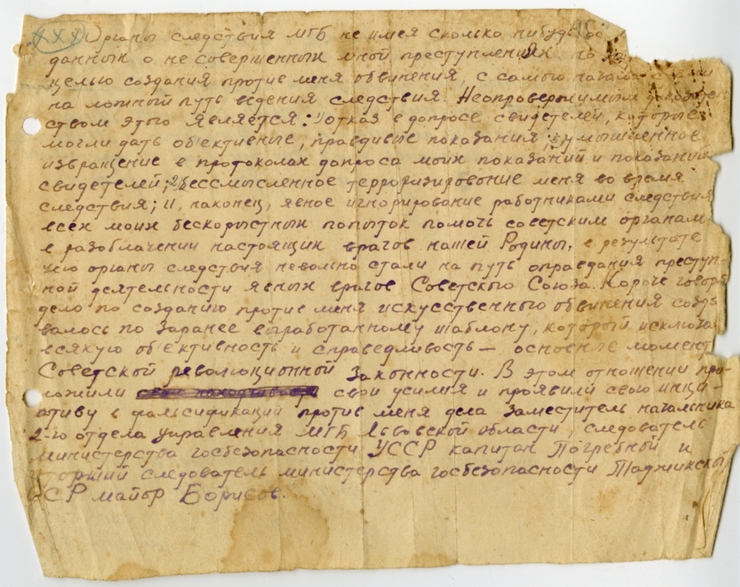 XXX Органы следствия МГБ не имея сколько нибудь
данных о не совершенных мной преступлениях
целью создания против меня обвинения, с самого начала
на ложный путь ведения следствия. Неопровержимым доказатель
ством этого является: 1) отказ в допросе свидетелей, которые
могли дать объективные, правдивые показания; умышленное
извращение в протоколах допроса моих показаний и показаний
свидетелей; бессмысленное терроризирование меня во время
следствия; и, наконец, явное игнорирование работниками следствия
всех моих бескорыстных попыток помочь советским органам
в разоблачении настоящих врагов нашей Родины, в результате
чего органы следствия невольно стали на путь оправдания преступ
ной деятельности явных врагов Советского Союза. Короче говоря
дело по созданию против меня искусственного обвинения созда
валось по заранее выработанному шаблону, который исключа
всякую объективность и справедливость — основные момент
Советской революционной законности. В этом отношении при
ложили свои усилия и проявили свою иници-
ативу в фальсификации против меня дела Заместитель начальника
2-го отдела управления МГБ Львовской области, следователь
министерства госбезопасности УССР капитан Погребной и
старший следователь министерства госбезопасности Таджикской
ССР майор Борисов.